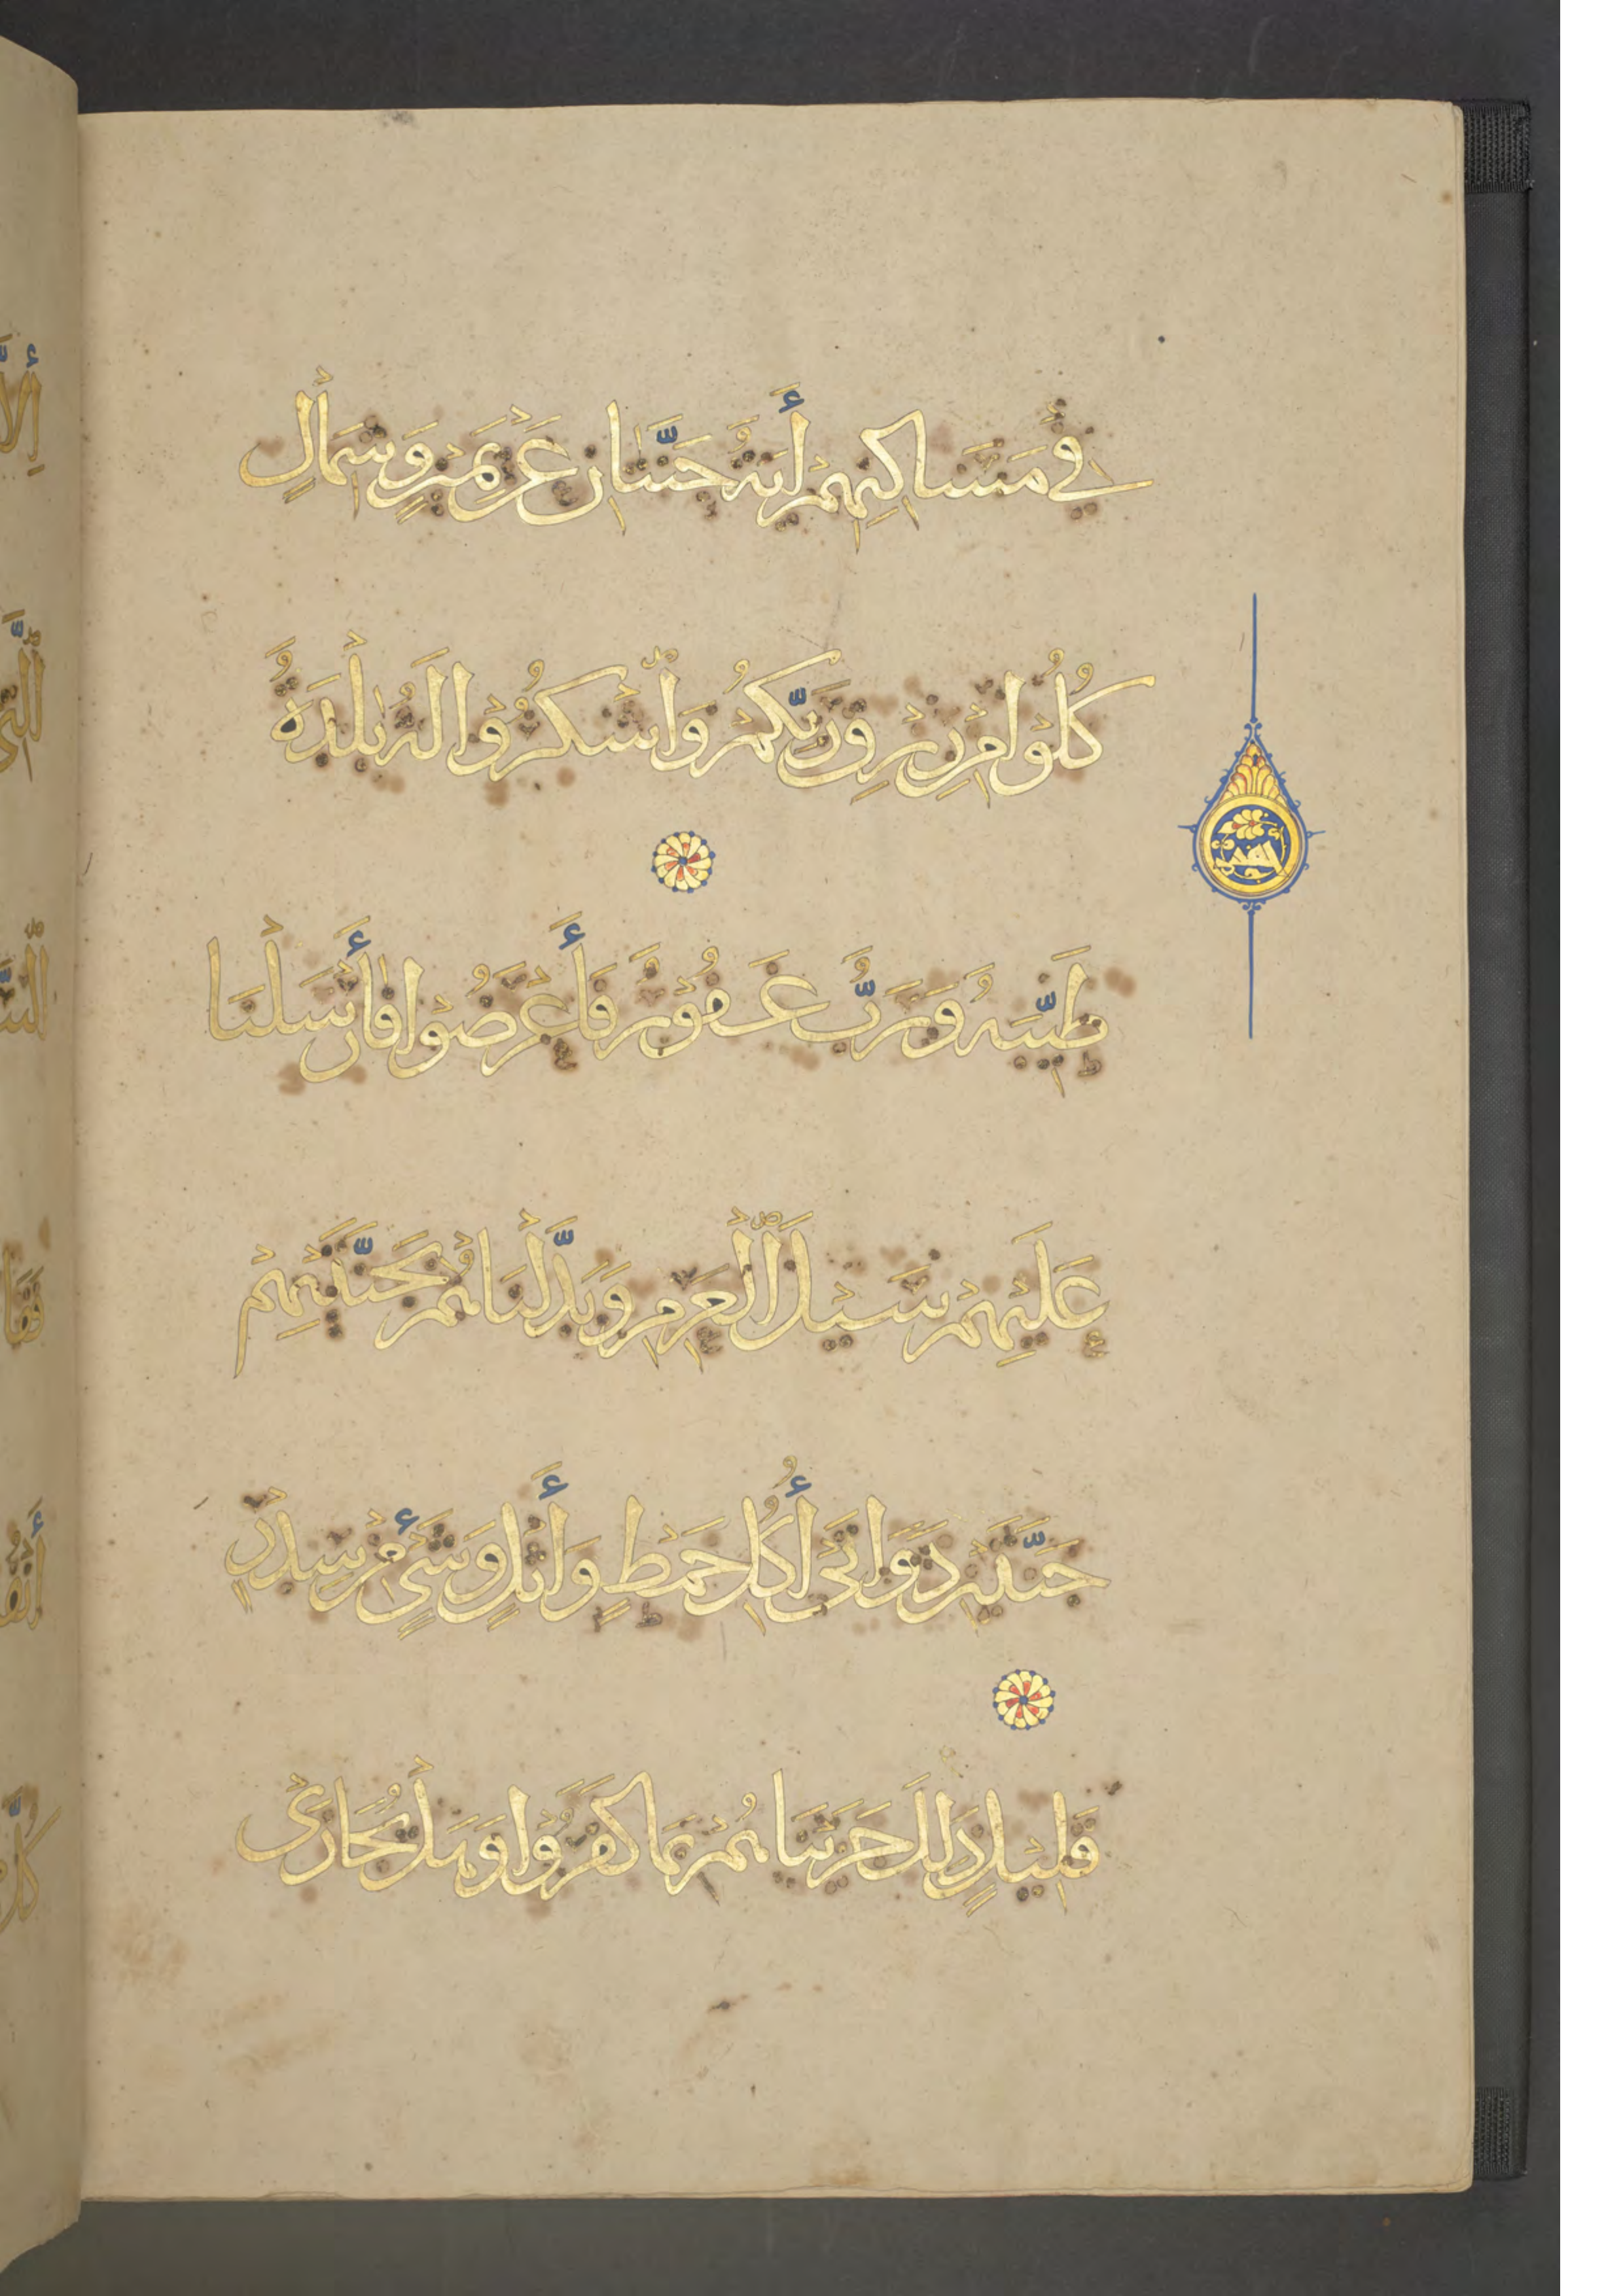 فِي مَسَاكِنِهِمْ أَيَةٌ جَنَّتَانِ عَنْ يَمِينٍ وَشِمَالٍ
كُلُوْا مِنْ رِزْقِ رَبِّكُمْ وَاشْكُرُوْا لَهُ بَلْدَةٌ
طَيِّبَةٌ وَرَبٌّ غَفُوْرٌ فَأَعْرَضُوْا فَأَرْسَلْنَا
عَلَيْهِمْ سَيْلَ الْعَرِمِ وَبَدَّلْنَاهُمْ بِجَنَّتَيْهِمْ
جَنَّتَيْنِ ذَوَاتَيْ أُكُلٍ خَمْطٍ وَأَثْلٍ وَشَيْءٍ مِنْ سِدْرٍ
قَلِيْلٍ ذَلِكَ جَزَيْنَاهُمْ بِمَا كَفَرُوْا وَهَلْ نُجَازِيْ